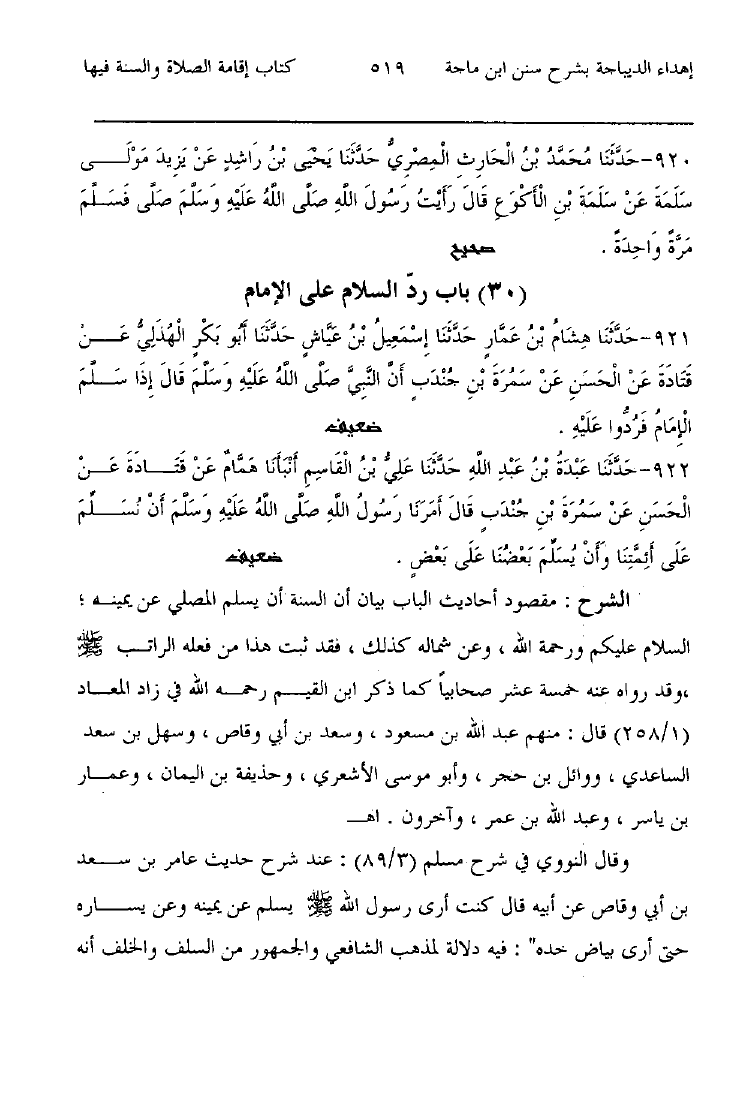 إهداء الديباجة بشرح سنن ابن ماجة ٥١٩ كتاب إقامة الصلاة والسنة فيها
٩٢٠-حَدَّثَنَا مُحَمَّدُ بْنُ الْحَارِثِ الْمِصْرِيُّ حَدَّثَنَا يَحْيَى بْنُ رَاشِدٍ عَنْ يَزِيدَ مَوْلَى
سَلَمَةَ عَنْ سَلَمَةَ بْنِ الْأَكْوَعِ قَالَ رَأَيْتُ رَسُولَ اللهِ صَلَّى اللهُ عَلَيْهِ وَسَلَّمَ صَلَّى فَسَلَّمَ
مَرَّةً وَاحِدَةً . صحيح
(٣٠) باب ردّ السلام على الإمام
٩٢١-حَدَّثَنَا هِشَامُ بْنُ عَمَّارٍ حَدَّثَنَا إِسْمَعِيلُ بْنُ عَيَّاشٍ حَدَّثَنَا أَبُو بَكْرٍ الْهُذَلِيُّ عَنْ
قَتَادَةَ عَنْ الْحَسَنِ عَنْ سَمُرَةَ بْنِ جُنْدَبٍ أَنَّ النَّبِيَّ صَلَّى اللهُ عَلَيْهِ وَسَلَّمَ قَالَ إِذَا سَلَّمَ
الْإِمَامُ فَرُدُّوا عَلَيْهِ . ضعيف
٩٢٢-حَدَّثَنَا عَبْدَةُ بْنُ عَبْدِ اللهِ حَدَّثَنَا عَلِيُّ بْنُ الْقَاسِمِ أَنْبَأَنَا هَمَّامٌ عَنْ قَتَادَةَ عَنْ
الْحَسَنِ عَنْ سَمُرَةَ بْنِ جُنْدَبٍ قَالَ أَمَرَنَا رَسُولُ اللهِ صَلَّى اللهُ عَلَيْهِ وَسَلَّمَ أَنْ نُسَلِّمَ
عَلَى أَئِمَّتِنَا وَأَنْ يُسَلِّمَ بَعْضُنَا عَلَى بَعْضٍ . ضعيف
الشرح : مقصود أحاديث الباب بيان أن السنة أن يسلم المصلي عن يمينه ؛
السلام عليكم ورحمة الله ، وعن شماله كذلك ، فقد ثبت هذا من فعله الراتب ﷺ
،وقد رواه عنه خمسة عشر صحابياً كما ذكر ابن القيم رحمه الله في زاد المعاد
(٢٥٨/١) قال : منهم عبد الله بن مسعود ، وسعد بن أبي وقاص ، وسهل بن سعد
الساعدي ، ووائل بن حجر ، وأبو موسى الأشعري ، وحذيفة بن اليمان ، وعمار
بن ياسر ، وعبد الله بن عمر ، وآخرون . اهـ
وقال النووي في شرح مسلم (٨٩/٣) : عند شرح حديث عامر بن سعد
بن أبي وقاص عن أبيه قال كنت أرى رسول الله ﷺ يسلم عن يمينه وعن يساره
حتى أرى بياض خده" : فيه دلالة لمذهب الشافعي والجمهور من السلف والخلف أنه